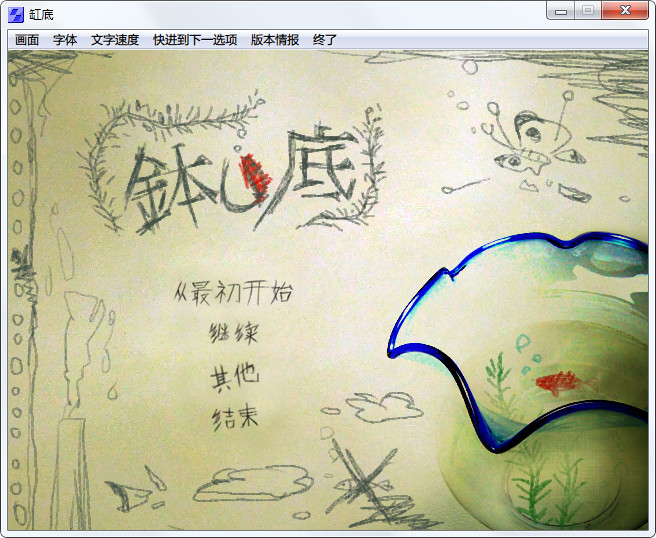 缸底
画面 字体 文字速度 快进到下一选项 版本情报 终了
鉢の底
从最初开始
继续
其他
结束